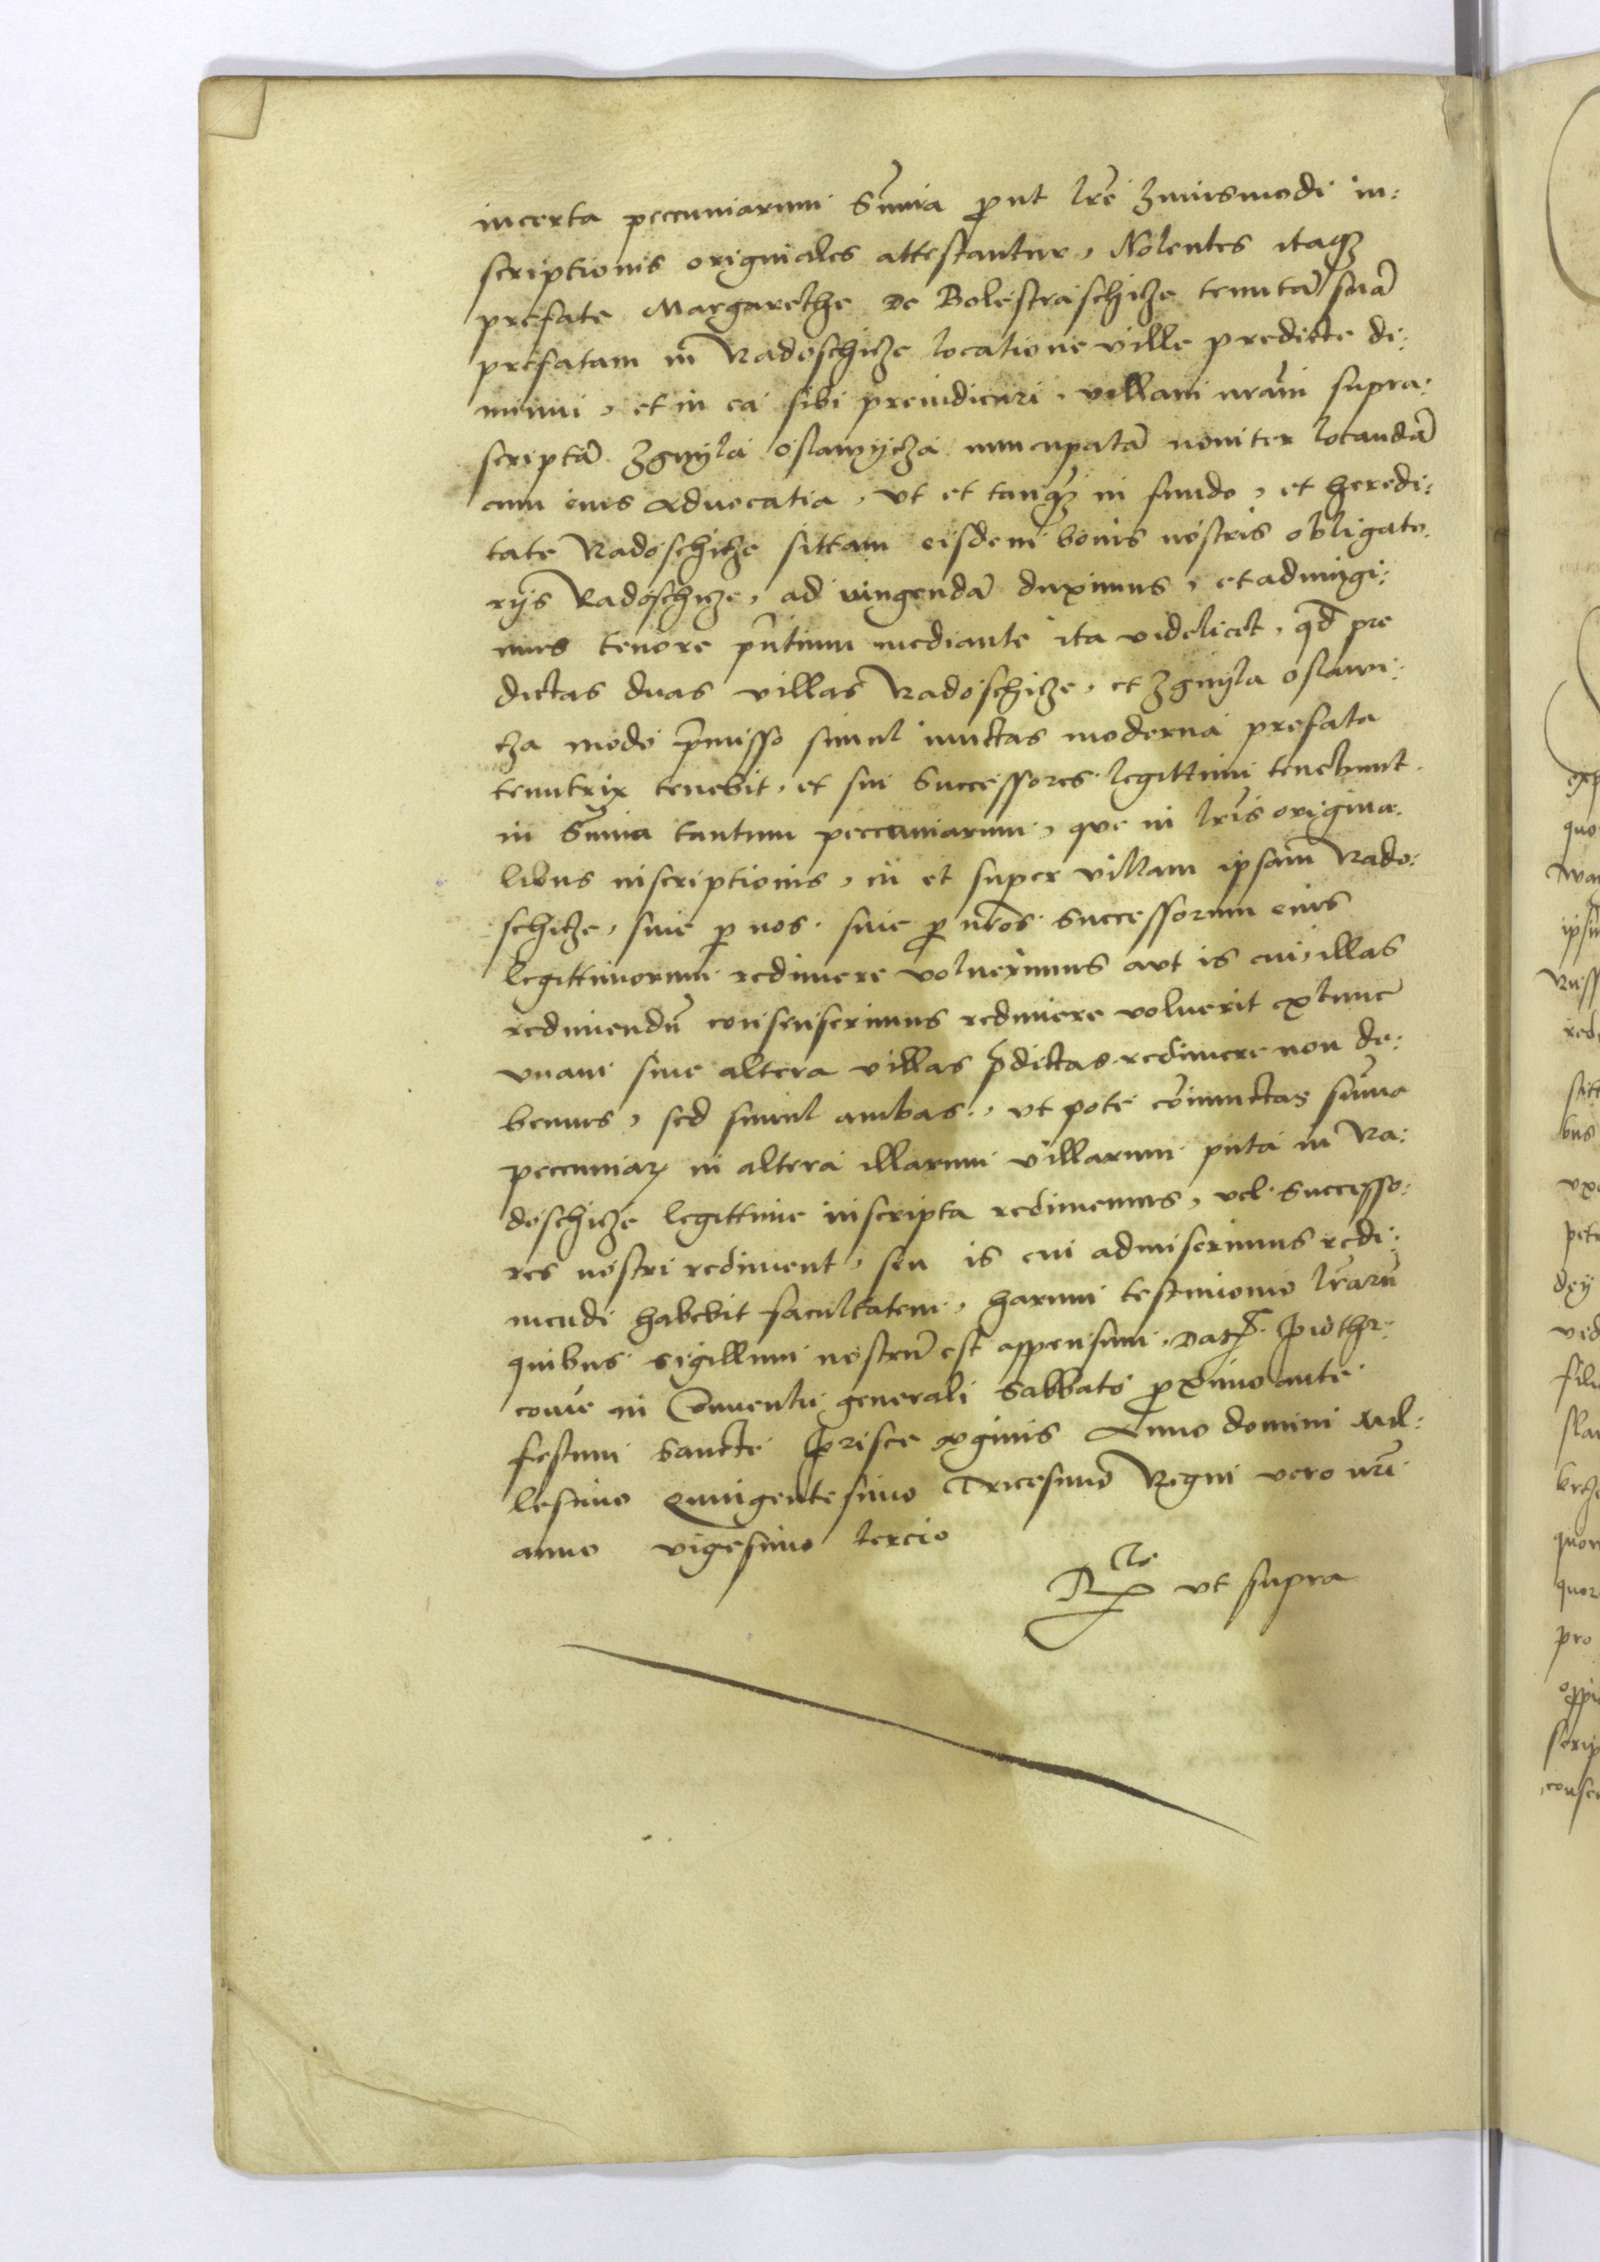 incerta peccuniarum summa prout lre huiusmodi in:
scriptionis originales attestantur, Nolentes itaq3
prefate Margarethe De Bolestraschicze tenutã suã
prefatam in Radoschicze locatione ville predicte di:
minui, et in ea sibi preiudicari, villam nram supra:
scriptã Zgnyla oslawycza nuncupatã noniter locandã
cum eius Advocatia, vt et tanq3 in fundo, et heredi:
tate Radoschicze sittam eisdem bonis nostris obligato:
rijs Radoschicze, ad iungendã duximus, et adiungi:
mus tenore pñtium mediante ita videlicet, qđ pre
dictas duas villas Radoschicze, et Zgnyla oslawi:
cza modo p̃misso simul iunctas moderna prefata
tenutrix tenebit, et sui Successores legittimi tenebunt
in Summa tantum peccuniarum, que in lris origina:
libus inscriptionis, in et super villam ipsam Rado:
schicze, siue p nos, siue p nros Successorum eius
legittimorum redimere voluerimus aut is cui illas
redimendũ consenserimus redimere voluerit extunc
vnam siue altera villas p̃dictas redimere non de:
bemus, sed simul ambas, vt pote cõiunctas summa
peccuniar in altera illarum villarum puta in Ra:
doschicze legittime inscripta redimemus, vel Successo:
res nostri rediment, seu is cui admiserimus redi:
mendi habebit facultatem, harum testimonio lrarũ
quibus sigillum nostrũ est appensum. Dat. Piother:
couie in Conuentu generali Sabbato proximo ante
festum Sancte Prisce virginis Anno domini Mil:
lesimo Quingentesimo Tricesimo Regni vero nri
anno vigesimo tercio
Rtio vt supra